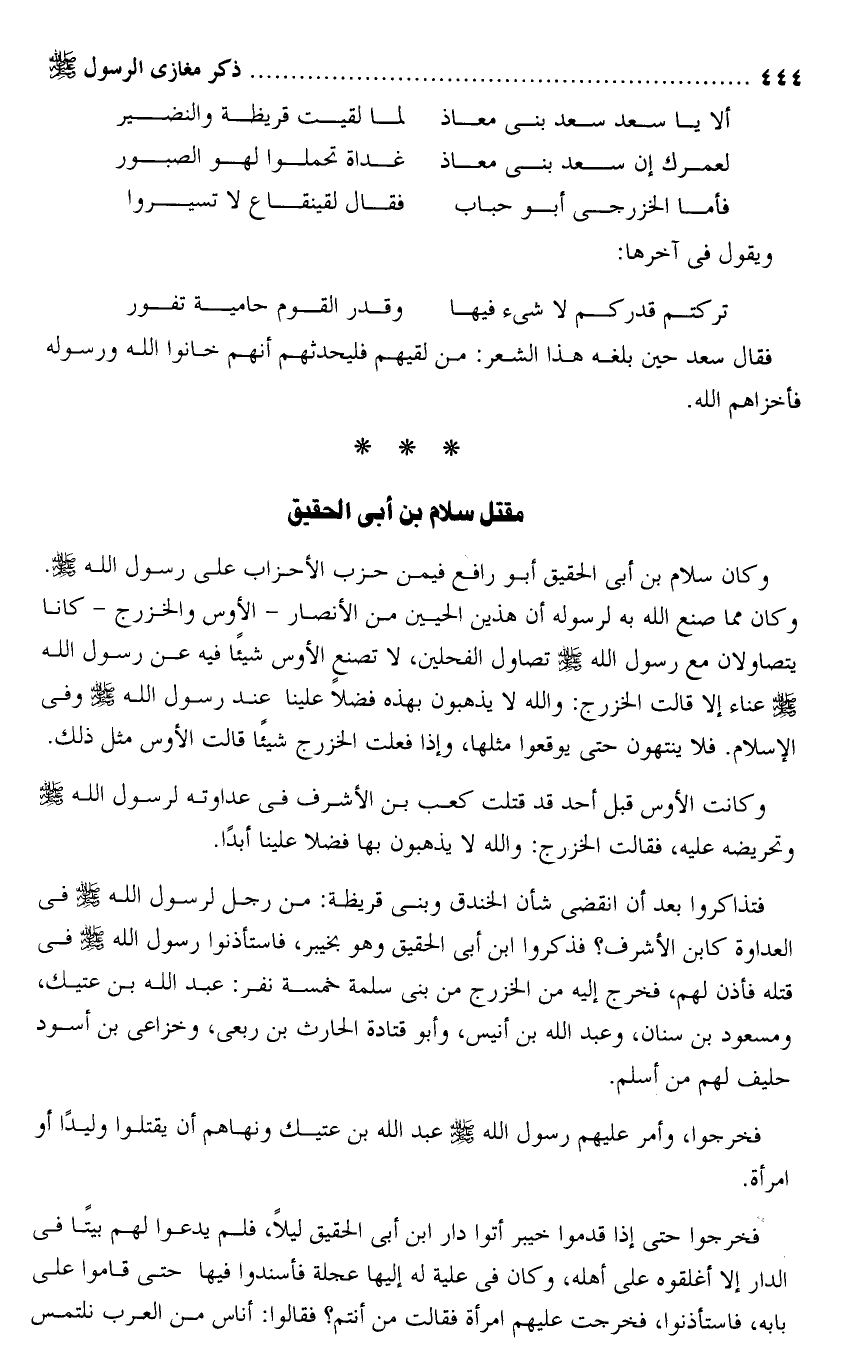 ٤٤٤ ............................................................ ذكر مغازى الرسول ﷺ
ألا يا سعد سعد بنى معاذ لما لقيت قريظة والنضير
لعمرك إن سعد بنى معاذ غداة تحملوا لهو الصبور
فأما الخزرجى أبو حباب فقال لقينقاع لا تسيروا
ويقول فى آخرها:
تركتم قدركم لا شىء فيها وقدر القوم حامية تفور
فقال سعد حين بلغه هذا الشعر: من لقيهم فليحدثهم أنهم خانوا الله ورسوله
فأخزاهم الله.
* * *
مقتل سلام بن أبى الحقيق
وكان سلام بن أبى الحقيق أبو رافع فيمن حزب الأحزاب على رسول الله ﷺ.
وكان مما صنع الله به لرسوله أن هذين الحيين من الأنصار - الأوس والخزرج - كانا
يتصاولان مع رسول الله ﷺ تصاول الفحلين، لا تصنع الأوس شيئًا فيه عن رسول الله
ﷺ عناء إلا قالت الخزرج: والله لا يذهبون بهذه فضلاً علينا عند رسول الله ﷺ وفى
الإسلام. فلا ينتهون حتى يوقعوا مثلها، وإذا فعلت الخزرج شيئًا قالت الأوس مثل ذلك.
وكانت الأوس قبل أحد قد قتلت كعب بن الأشرف فى عداوته لرسول الله ﷺ
وتحريضه عليه، فقالت الخزرج: والله لا يذهبون بها فضلا علينا أبدًا.
فتذاكروا بعد أن انقضى شأن الخندق وبنى قريظة: من رجل لرسول الله ﷺ فى
العداوة كابن الأشرف؟ فذكروا ابن أبى الحقيق وهو بخيبر، فاستأذنوا رسول الله ﷺ فى
قتله فأذن لهم، فخرج إليه من الخزرج من بنى سلمة خمسة نفر: عبد الله بن عتيك،
ومسعود بن سنان، وعبد الله بن أنيس، وأبو قتادة الحارث بن ربعى، وخزاعى بن أسود
حليف لهم من أسلم.
فخرجوا، وأمر عليهم رسول الله ﷺ عبد الله بن عتيك ونهاهم أن يقتلوا وليدًا أو
امرأة.
فخرجوا حتى إذا قدموا خيبر أتوا دار ابن أبى الحقيق ليلاً، فلم يدعوا لهم بيتًا فى
الدار إلا أغلقوه على أهله، وكان فى علية له إليها عجلة فأسندوا فيها حتى قاموا على
بابه، فاستأذنوا، فخرجت عليهم امرأة فقالت من أنتم؟ فقالوا: أناس من العرب نلتمس